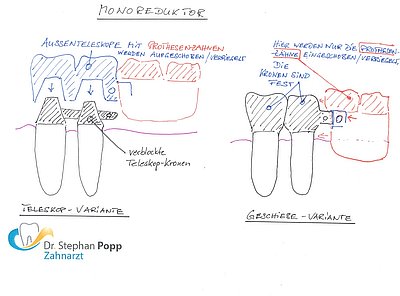 MONOREDUKTOR
AUSSENTELESKOPE MIT PROTHESENZÄHNEN
WERDEN AUFGESCHOBEN/VERRIEGELT
HIER WERDEN NUR DIE PROTHESEN-
ZÄHNE EINGESCHOBEN/VERRIEGELT.
DIE
KRONEN SIND
FEST!
verblockte
Teleskop-Kronen
TELESKOP-VARIANTE
GESCHIEBE-VARIANTE
Dr. Stephan Popp
Zahnarzt